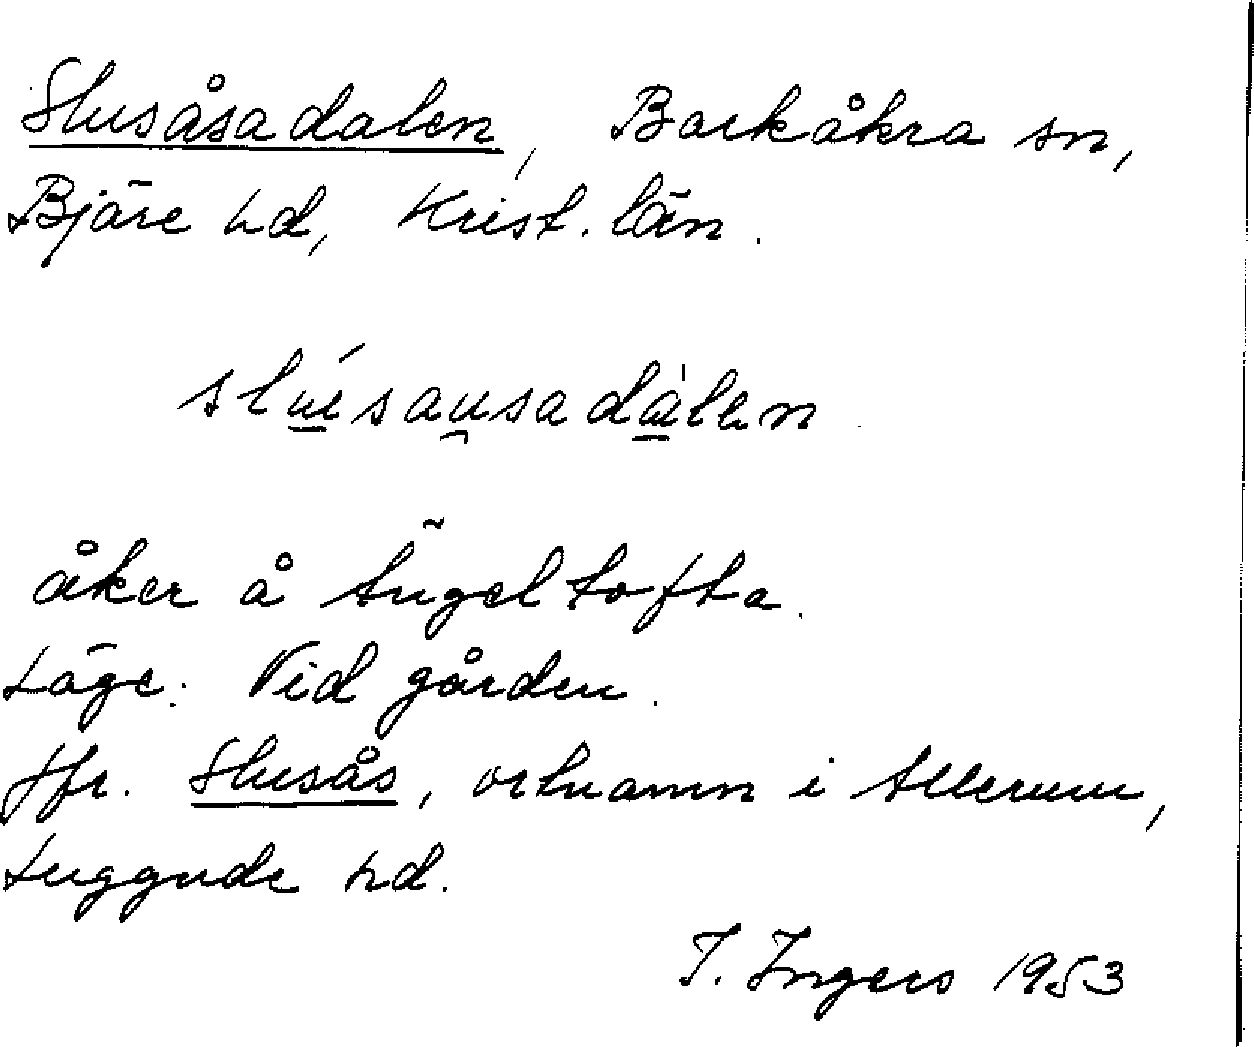 Slusåsadalen, Barkåkra sn,
Bjäre hd, Krist. län.
slúesausadàlen
åker å Ängeltofta.
Läge: Vid gården.
Jfr. Slusås, ortnamn i Allerum,
Luggude hd.
I. Ingers 1953